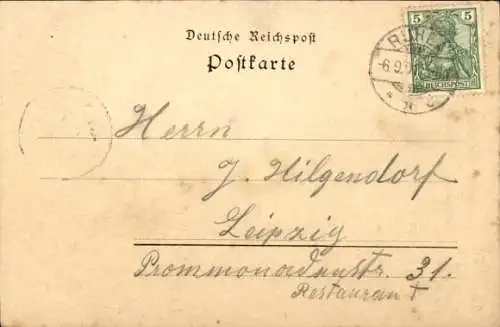 Deutsche Reichspost
Postkarte
5 5
REICHSPOST
Herrn
J. Hilgendorf
Leipzig
Prommonadenstr. 31.
Restaurant